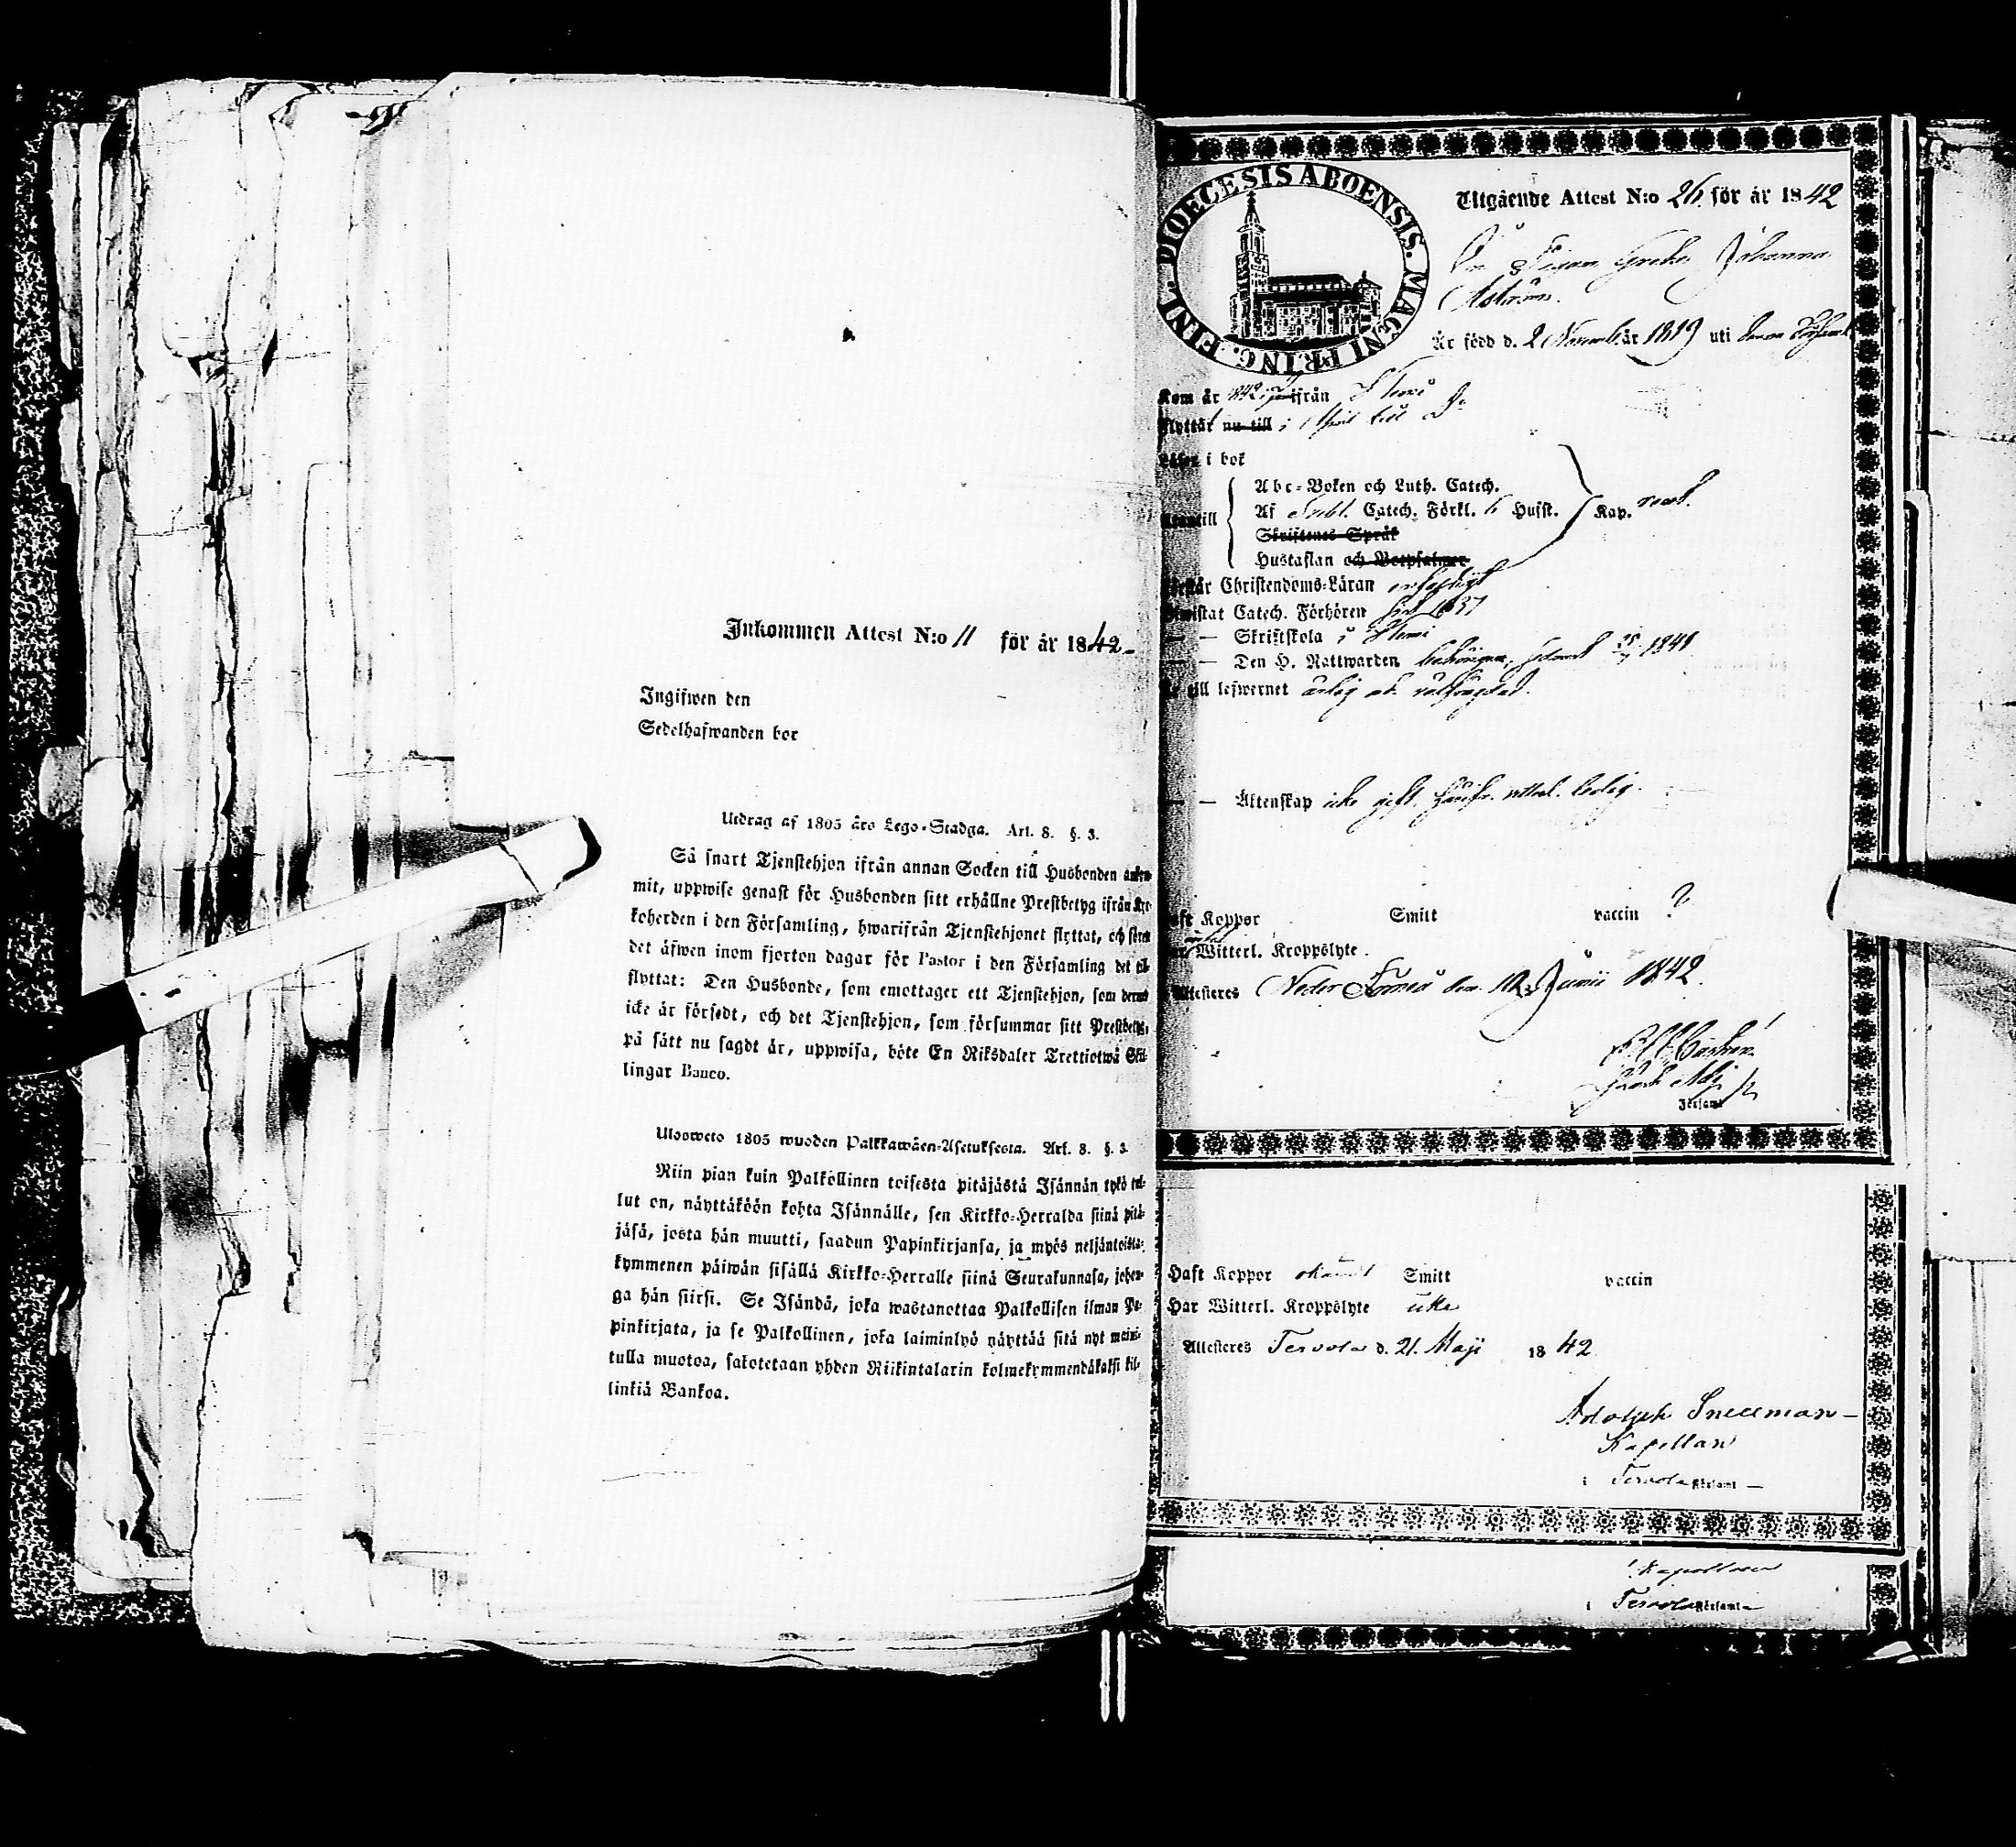 Inkommen Attest N:o 11 för år 1842.
Ingifwen den
Sedelhafwanden bor
Utdrag af 1805 års Lego-Stadga. Art. 8. §. 3.
Så snart Tjenstehjon ifrån annan Socken till Husbonden ankom-
mit, uppwise genast för Husbonden sitt erhållne Prestbetyg ifrån Kyr-
koherden i den Församling, hwarifrån Tjenstehjonet flyttat, och sedan
det äfwen inom fjorton dagar för Pastor i den Församling det till-
flyttat: Den Husbonde, som emottager ett Tjenstehjon, som dermed
icke är försedt, och det Tjenstehjon, som försummar sitt Prestbetyg,
på sätt nu sagdt är, uppwisa, böte En Riksdaler Trettiotwå Skil-
lingar Banco.
Ulosweto 1805 wuoden Palkkawäen-Asetuksesta. Art. 8. §. 3.
Niin pian kuin Palkollinen toisesta pitäjästä Isännän tykö tul-
lut on, näyttäköön kohta Isännälle, sen Kirkko-Herralda siinä pitä-
jäsä, josta hän muutti, saadun Papinkirjansa, ja myös neljäntoista-
kymmenen päiwän sisällä Kirkko-Herralle siinä Seurakunnasa, johon-
ga hän siirsi. Se Isändä, joka wastanottaa Palkollisen ilman Pa-
pinkirjata, ja se Palkollinen, joka laiminlyö näyttää sitä nyt maini-
tulla muotoa, sakotetaan yhden Riikintalarin kolmekymmendäkaksi kil-
linkiä Bankoa.
DIOECESIS ABOENSIS. MAGNI PRINC. FINL.
Utgående Attest N:o 26 för år 1842
Pig. Greta Johanna
Är född d. 2 Novemb. år 1819 uti denna
Kom år 1842 ifrån
Flyttar nu till i April till
Läser i bok
Abc-Boken och Luth. Catech.
Utantill Af Svebl. Catech. Förkl. 6 Hufst. Kap.
Skriftenes Språk
Hustaflan och Botpsalmer
Förstår Christendoms-Läran
Bewistat Catech. Förhören 1837
— — Skriftskola i
— — Den H. Nattwarden 1841
Är till lefwernet ärlig och
— — Äktenskap icke gift, ledig.
Haft Koppor Smitt vaccin ?
Har Witterl. Kroppslyte
Attesteres Neder Torneå den 12 Junii 1842.
Församl.
Haft Koppor Smitt vaccin
Har Witterl. Kroppslyte icke
Attesteres Tervola d. 21. Maji 1842
Adolph Snellman
Kapellan
i Tervola Församl.
Kapellan
i Tervola Församl.